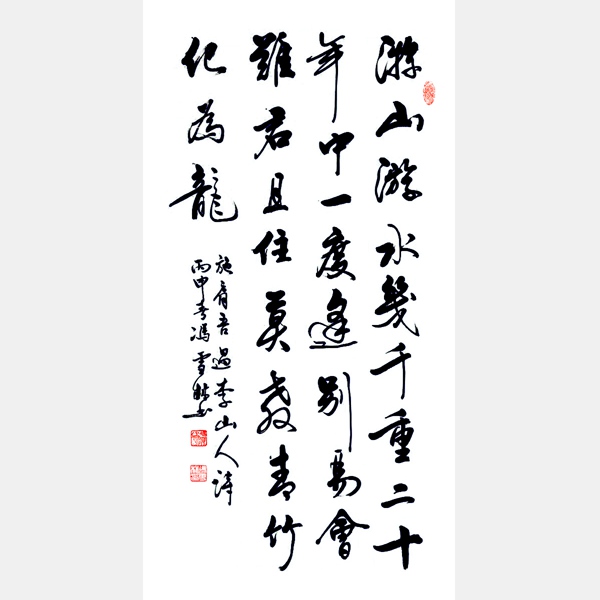 游山游水幾千重二十
年中一度逢別易會
難君且住莫教青竹
化為龍
施肩吾過李山人詩
丙申春馮雪林书